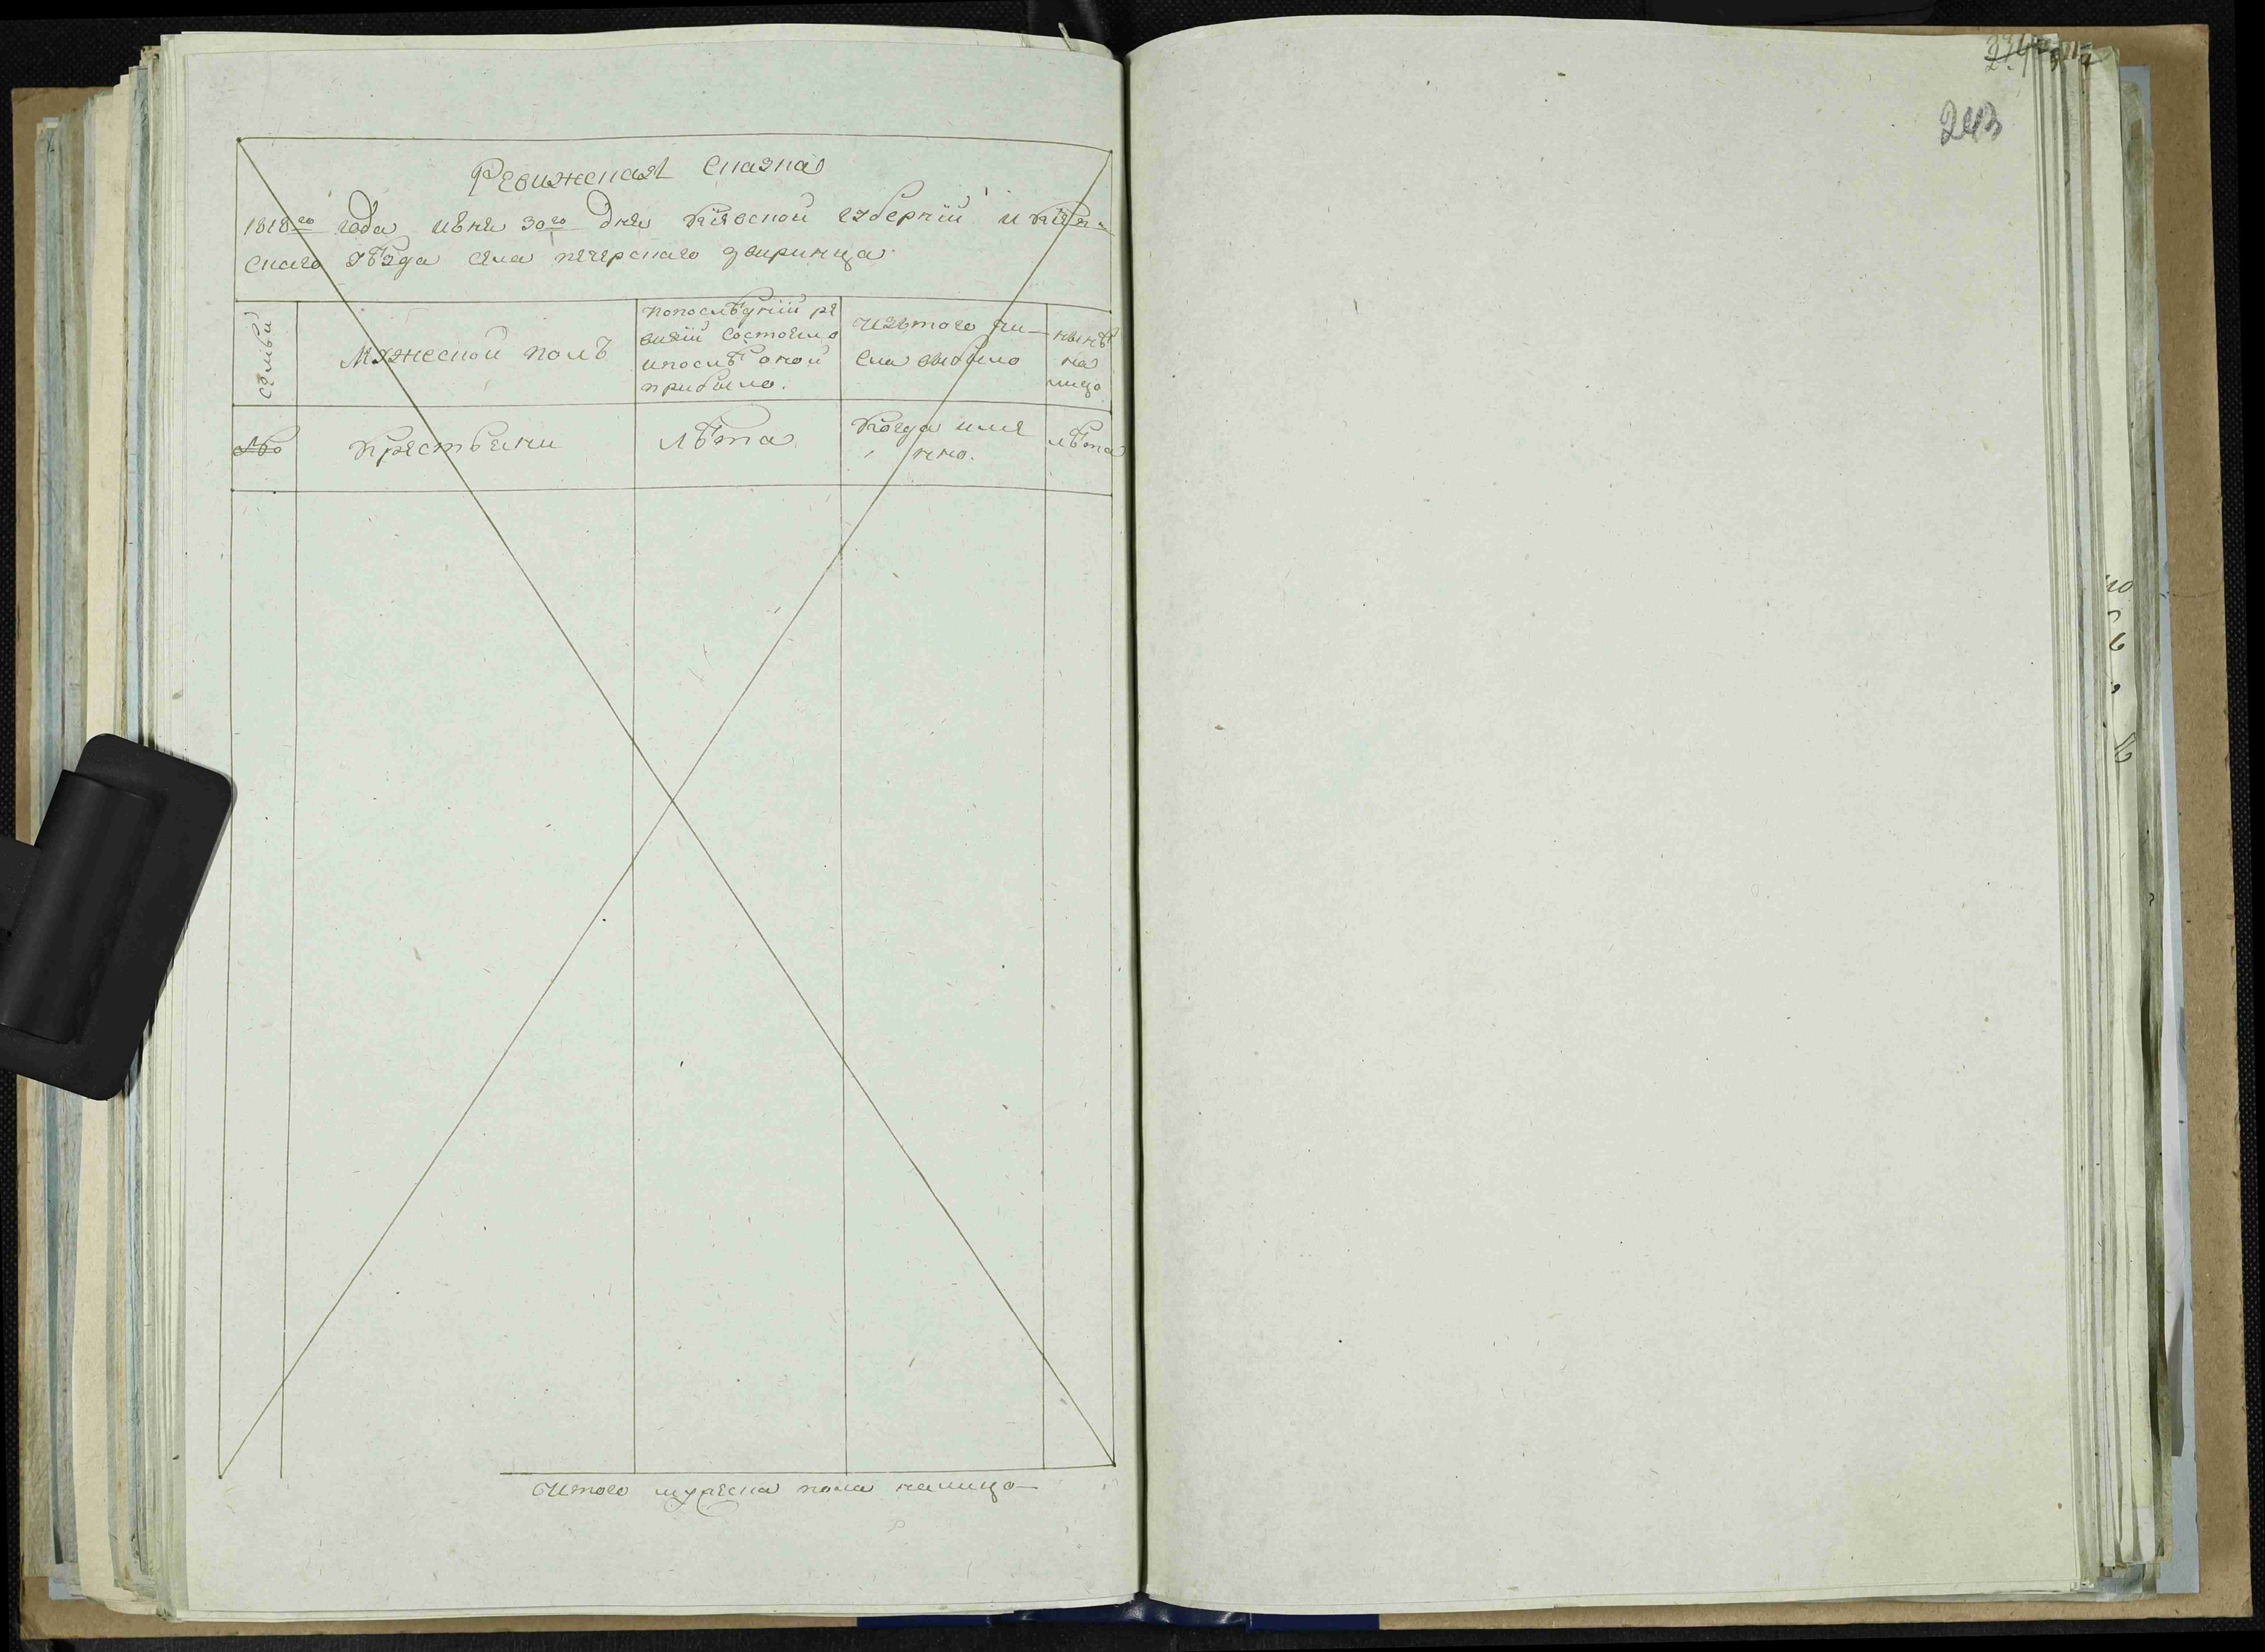 Ревижская Сказка
1818го года июня 30го дня Киевской губернїи и Киев-
скаго уѣзда села печерскаго звиринца
семьи
Мужеской полъ
попослѣднїй ре
визїи состояло
ипослѣ оной
прибыло.
Изътого чи-
сла выбыло
нынѣ
на
лицо
№
Крестьяни
лѣта
Когда име
нно.
лѣта
Итого мужеска пола налицо
243